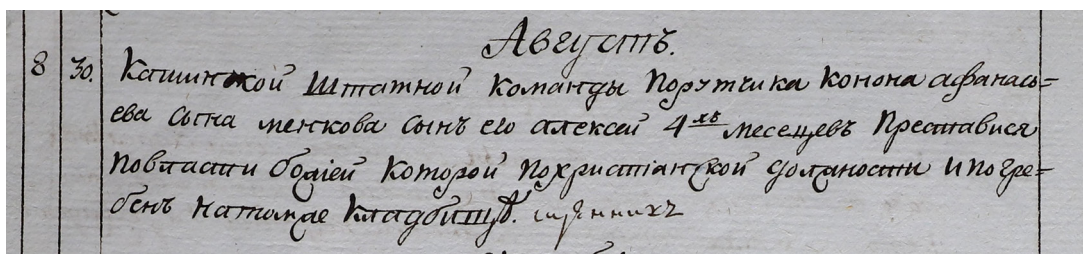 Августъ.
8 30. Кашинской Штатной команды порутчика конона афанась=
ева сына менкова сынъ его алексей 4хъ месецевъ преставися
повласти божіей которой похристіанской должности и погре=
бенъ натомже кладбищѣ.